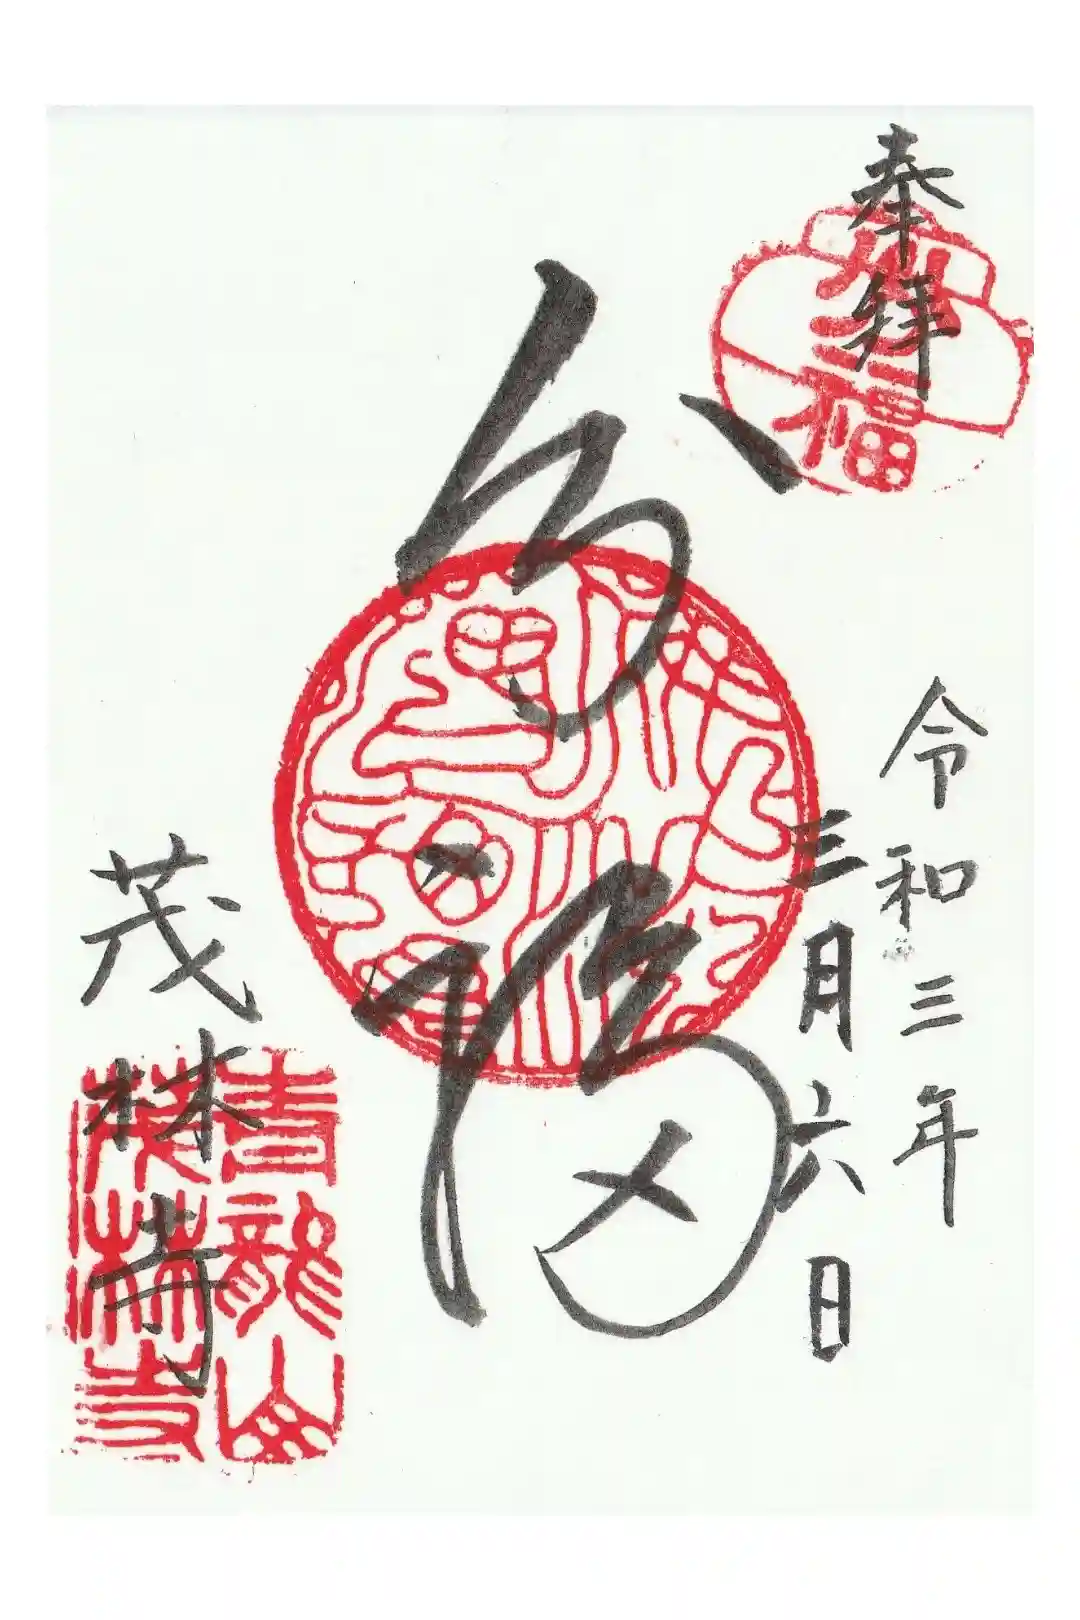 奉拝
令和三年
三月六日
分福
茂林寺
青龍山
茂林寺